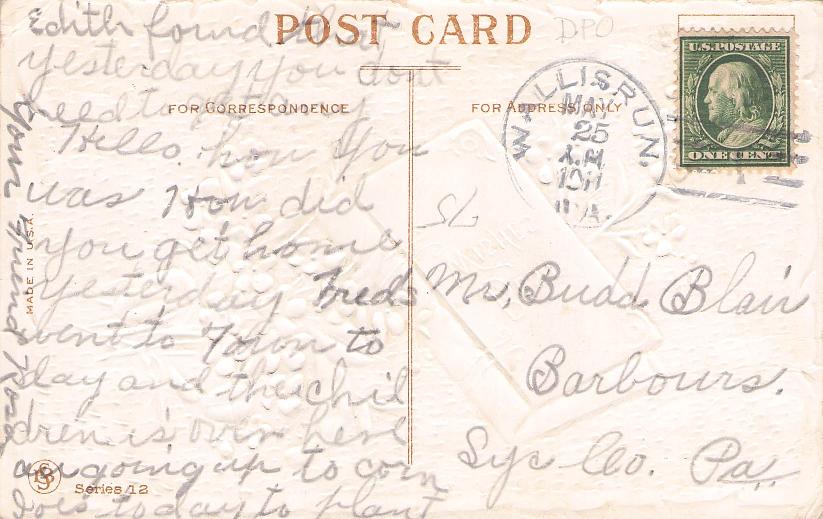 Edith found that
yesterday you dont
need to get any
POST CARD
DPO
U.S. POSTAGE
ONE CENT
FOR CORRESPONDENCE
FOR ADDRESS ONLY
WALLISRUN.
MAY
25
A.M.
1911
PA.
Hello. how you
was How did
you get home
yesterday Freds
went to Town to
day and the chil
dren is over here
am going up to corn
to day to plant
your Friend Rosa
75
Mr. Budd Blair
Barbours.
Lyc Co. Pa.
MADE IN U.S.A.
Series 12